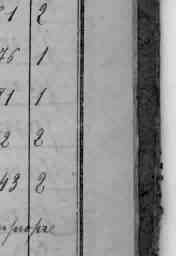 1 2
76 1
71 1
2 2
43 2